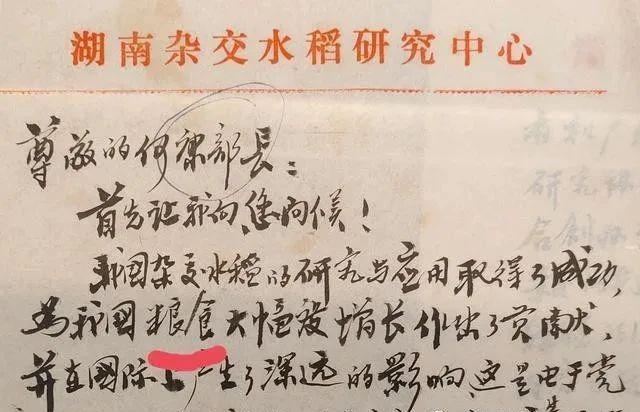 湖南杂交水稻研究中心
尊敬的何康部长：
首先让我向您问候！
我国杂交水稻的研究与应用取得了成功，
为我国粮食大幅度增长作出了贡献，
并在国际上产生了深远的影响，这是由于党